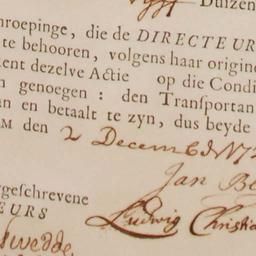 Duizen
hroepinge, die de DIRECTEUR
te behooren, volgens haar origine
ent dezelve Actie op die Condi
n genoegen: den Transportan
an en betaalt te zyn, dus beyde
M den 2 Decemb
Jan Be
rgeschrevene
EURS
Ludwig Christia